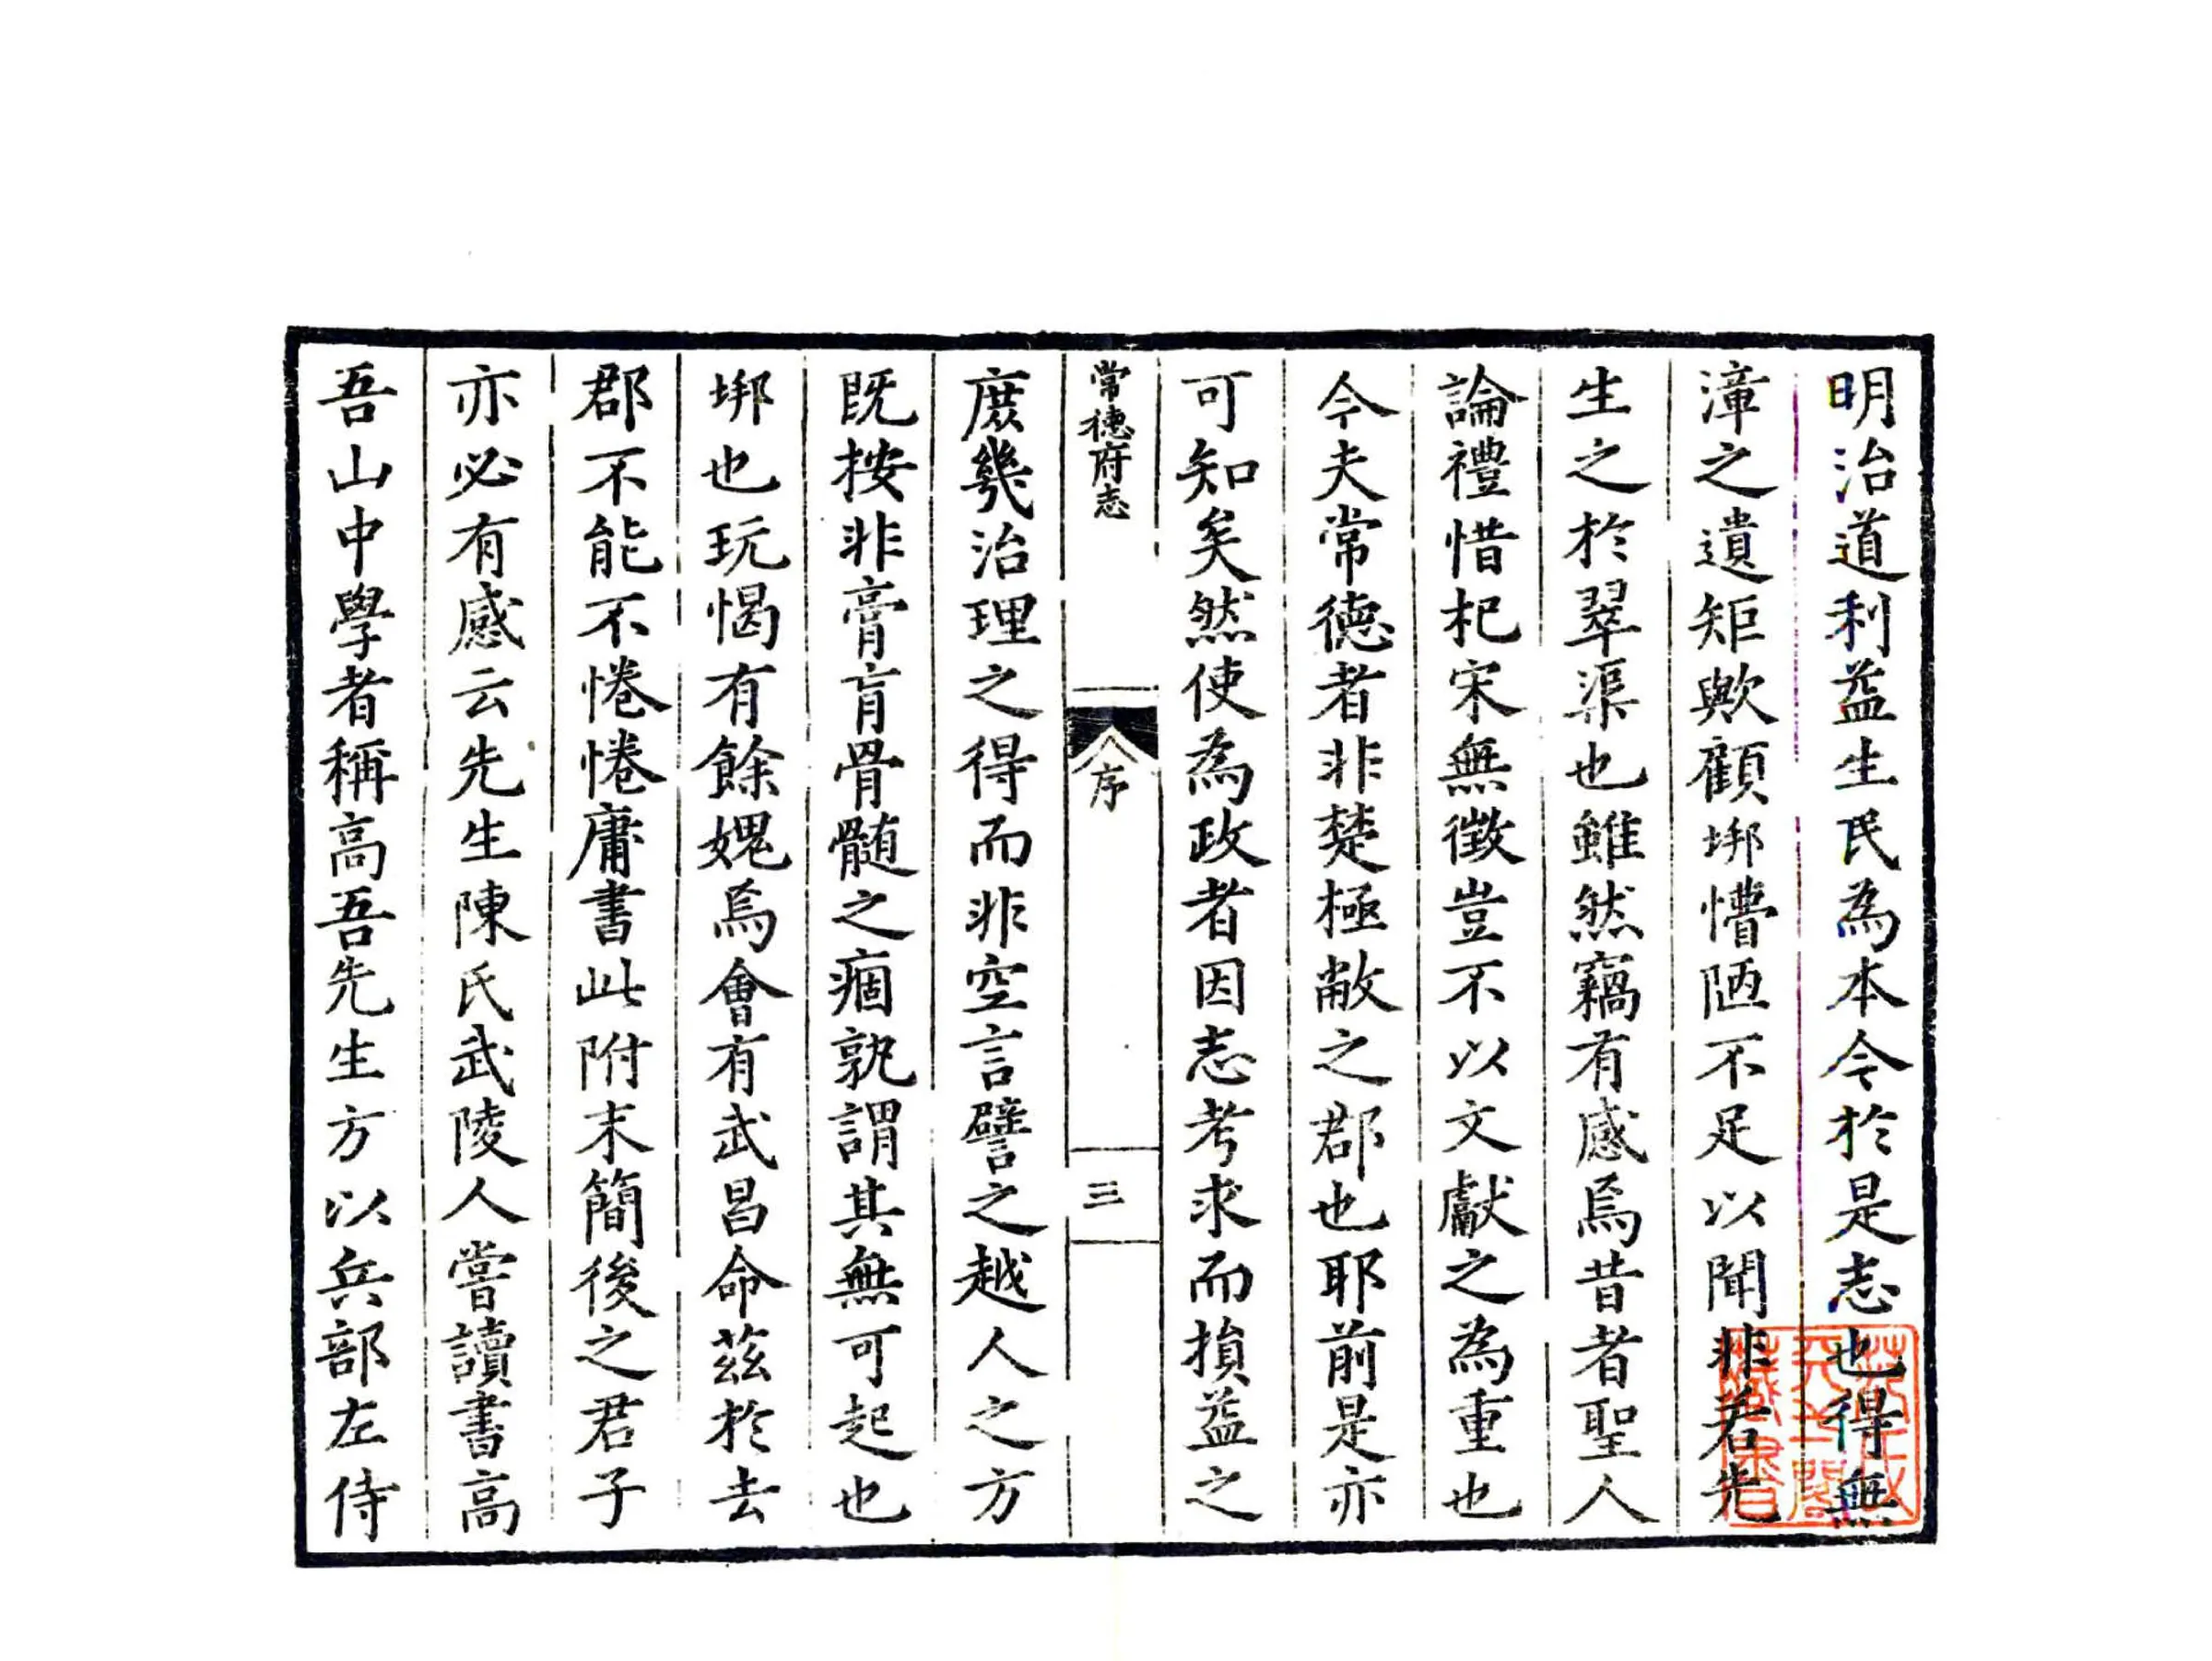 明治道利益生民為本今於是志也得無
漳之遺矩歟顧埁懵陋不足以聞非若先
生之於翠渠也雖然竊有感焉昔者聖人
論禮惜杞宋無徵豈不以文獻之為重也
今夫常德者非楚極敝之郡也耶前是亦
可知矣然使為政者因志考求而損益之
常德府志
序
三
庶幾治理之得而非空言譬之越人之方
既按非膏肓骨髓之痼孰謂其無可起也
也玩愒有餘媿焉會有武昌命茲於去
郡不能不惓惓庸書此附末簡後之君子
亦必有感云先生陳氏武陵人嘗讀書高
吾山中學者稱高吾先生方以兵部左侍